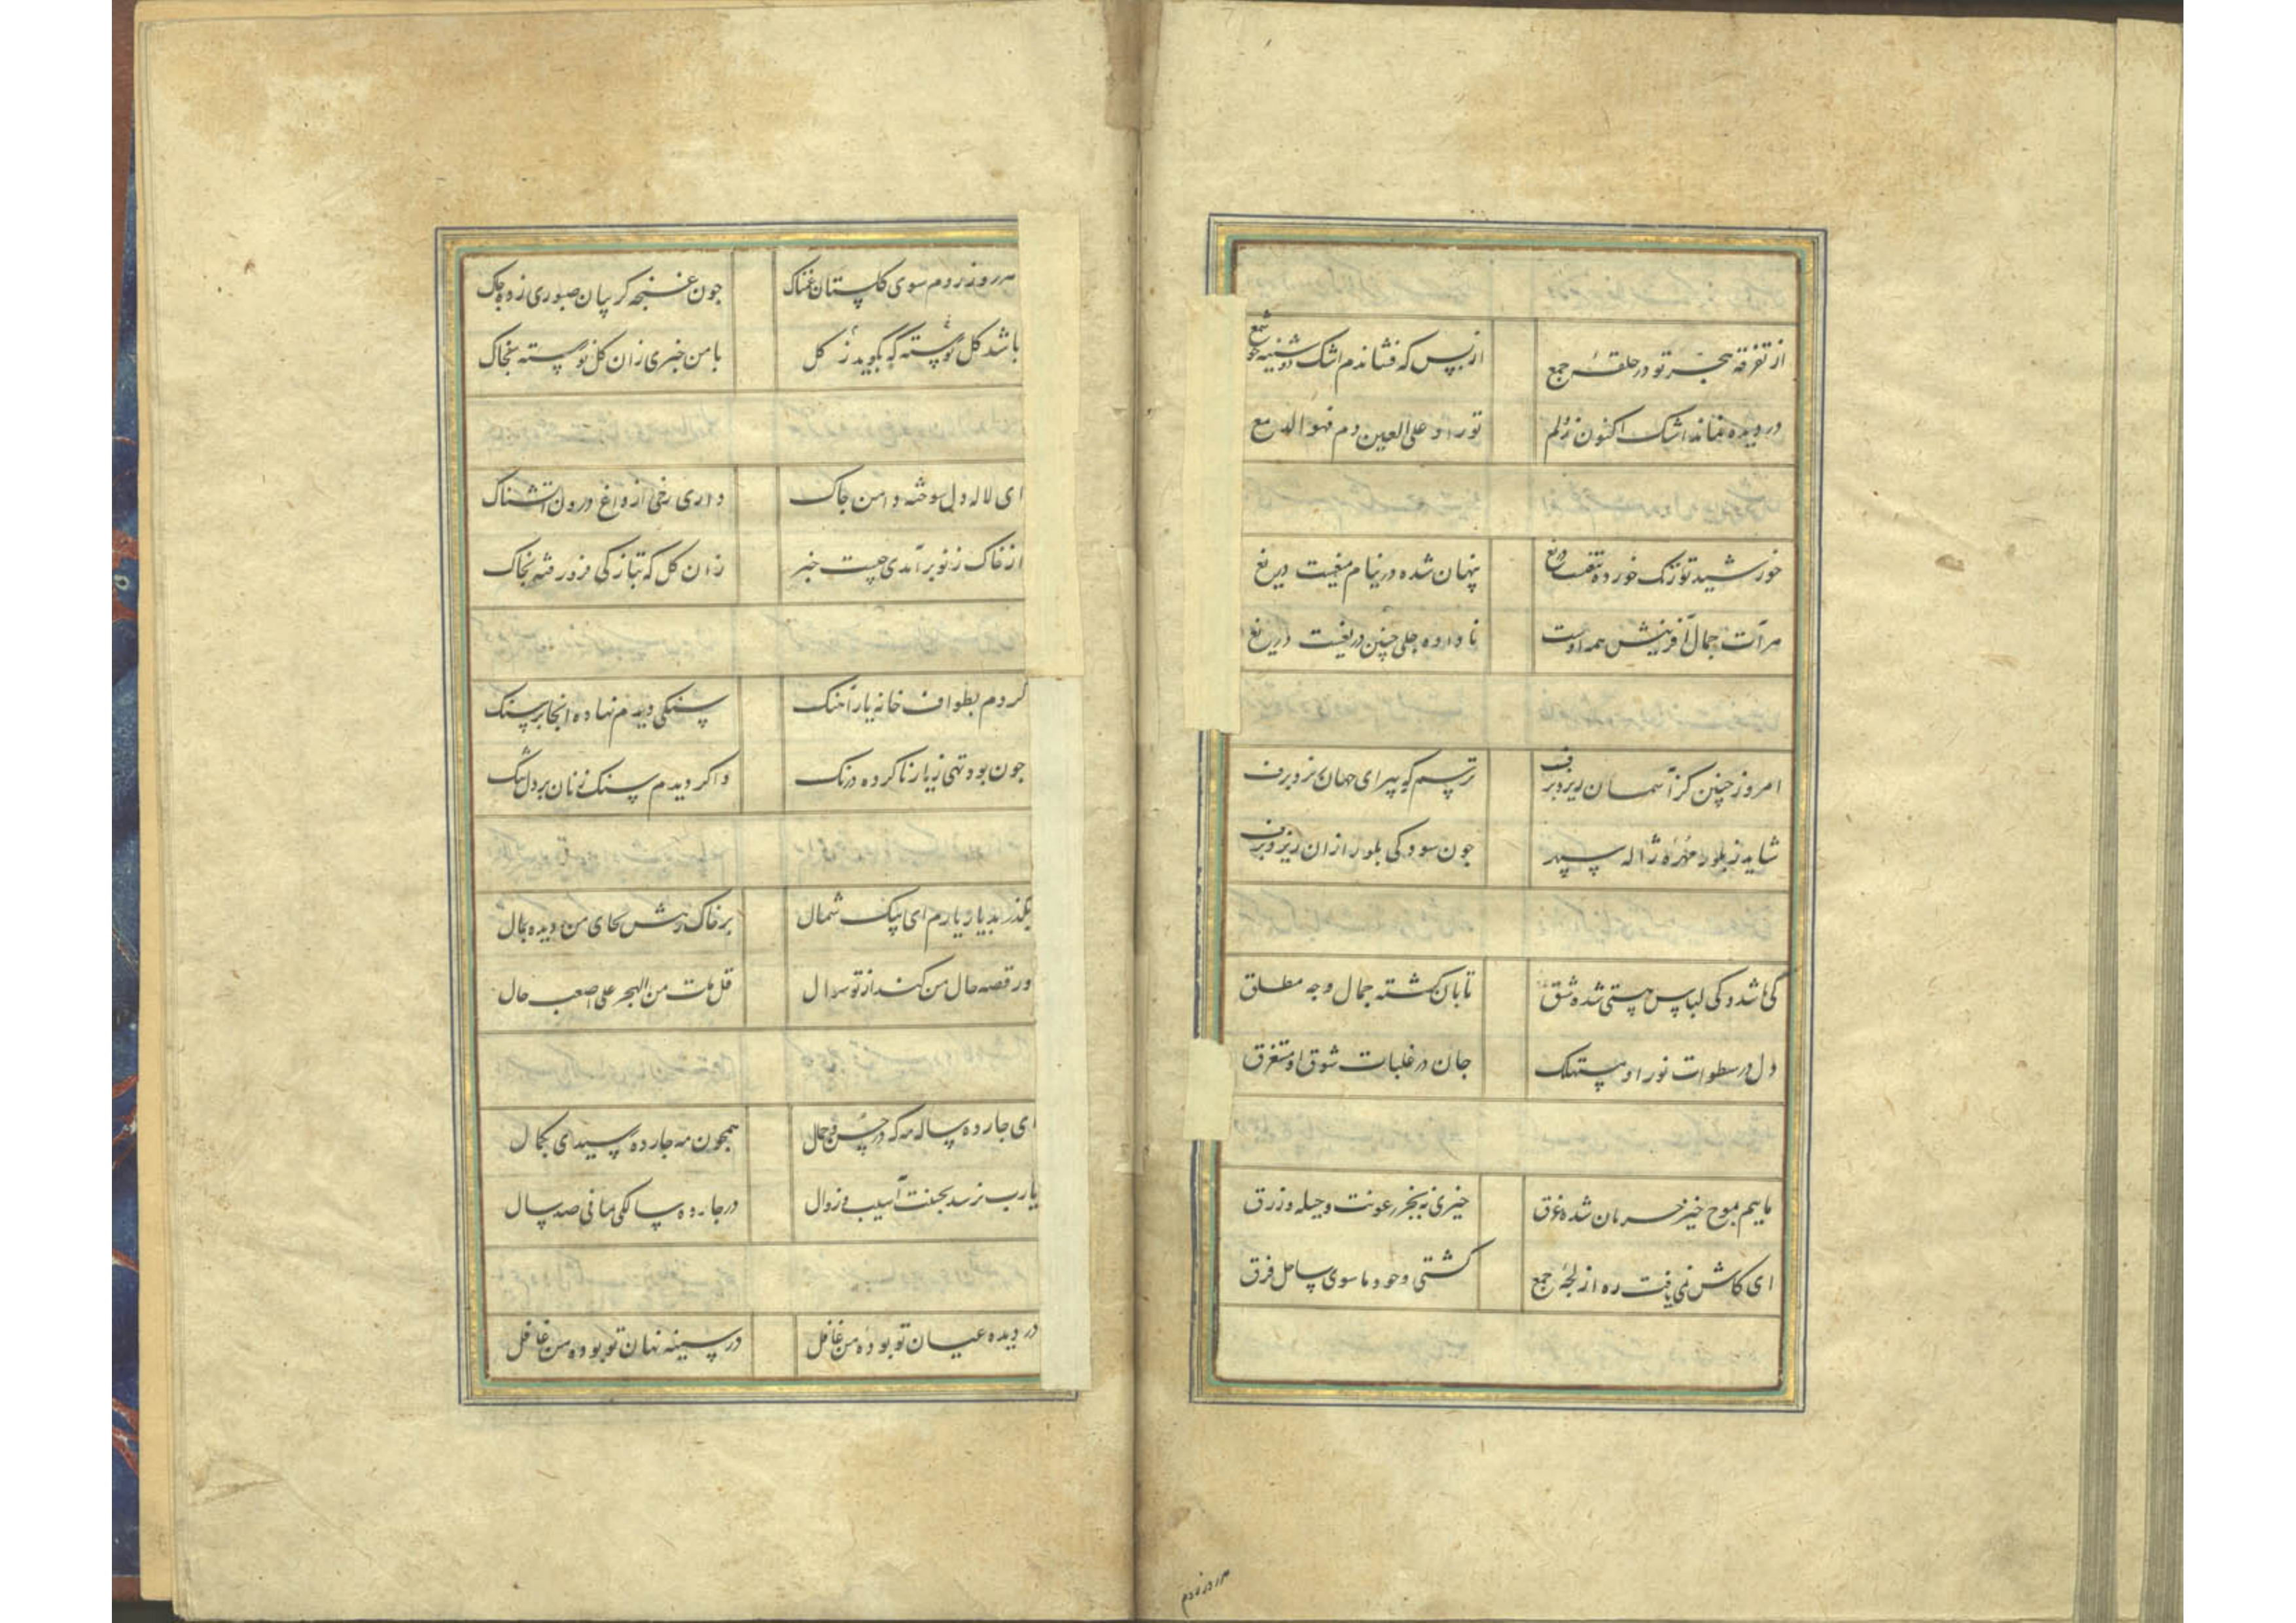 از تفرقه هجر تو در حلقهٔ جمع از بس که فشاندم اشک دوشینه چو شمع
در دیده نماند اشک اکنون ز دلم تو راد علی العین دم فهو الدمع
خورشید تو زنک خورده تیغست دریغ پنهان شده در نیام میغست دریغ
مرآت جمال آفرینش همه اوست نا داده جلی چنین دریغست دریغ
امروز چنین کز آسمان ریزد برف ترسم که پیرای جهان ریزد برف
شاید ز بلور مهره ژاله سپهر جون سودکی بلور ازان ریزد برف
کی باشد و کی لباس هستی شده شق تابان کشته جمال وجه مطلق
دل در سطوات نور او مستهلک جان در غلبات شوق او مستغرق
ماییم بموج خیز حرمان شده غرق خیزی نه بجز رعونت و حیله و زرق
ای کاش نمی یافت ره از لجهٔ جمع کشتی وجود ما سوی ساحل فرق
هر روز روم سوی کلستان غمناک جون غنجه کریبان صبوری زده جاک
باشد کل نورسته که بکوید ز کل با من خبری زان کل نورسته بخاک
ای لاله دل سوخته دامن جاک داری رخی از داغ درون آتشناک
از خاک ز نو برآمدی چیست خبر زان کل که بتازکی فرو رفته بخاک
کردم بطواف خانه یار آهنک سنکی دیدم نهاده انجا بر سنک
جون بود تهی ز یار ناکرده درنک واکردیدم سنک زنان بر دل تنک
بکذر بدیار یارم ای پیک شمال بر خاک رهش بجای من دیده بمال
ور قصه حال من کند از تو سوال قل مات من الهجر علی اصعب حال
ای جارده ساله مه که در حسن و جمال همجون مه جارده رسیدی بکمال
یا رب نرسد بحسنت آسیب زوال در جارده سالکی مانی صد سال
در دیده عیان تو بودهٔ من غافل در سینه نهان تو بودهٔ من غافل
هر روز روم